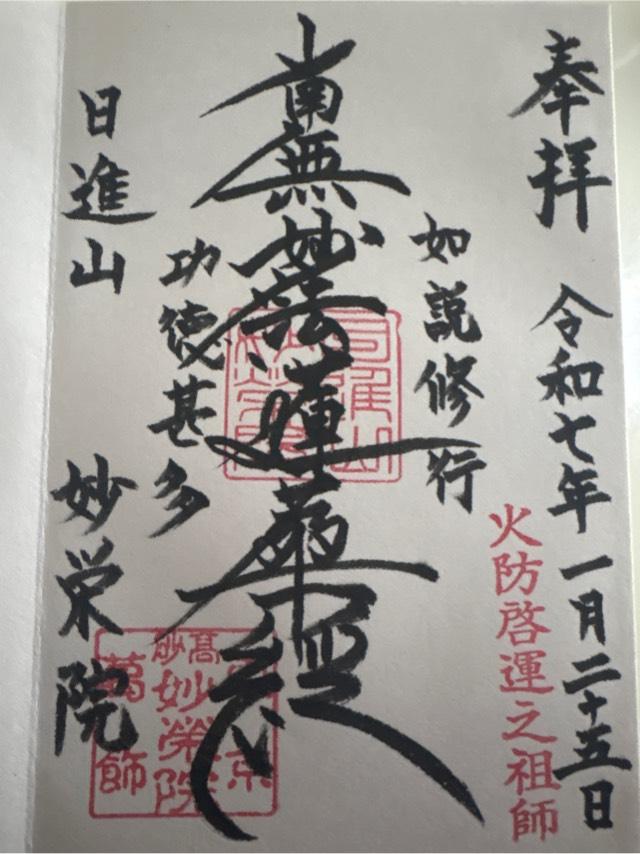 奉拝
令和七年一月二十五日
火防啓運之祖師
如説修行
南無妙法蓮華経
功徳甚多
日進山
妙栄院
妙榮院